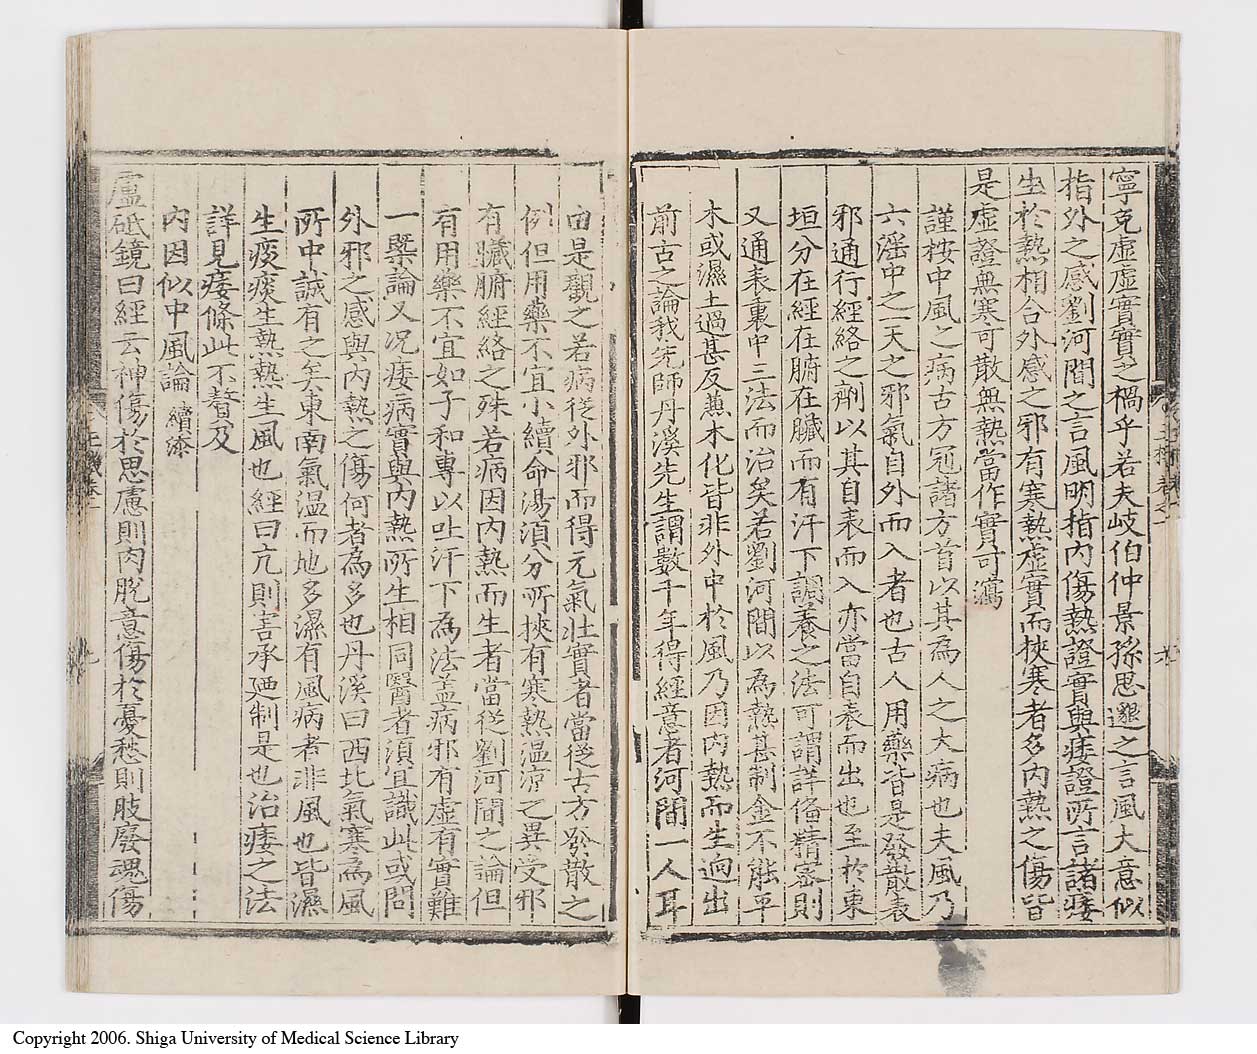 寧克虛虛實實之禍乎若夫岐伯仲景孫思邈之言風大意似
指外之感劉河間之言風明指內傷熱證實與痿證所言諸痿
生於熱相合外感之邪有寒熱虛實而挾寒者多內熱之傷皆
是虛證無寒可散無熱當作實可瀉
謹桉中風之病古方冠諸方首以其為人之大病也夫風乃
六滛中之一天之邪氣自外而入者也古人用藥皆是發散表
邪通行經絡之劑以其自表而入亦當自表而出也至於東
垣分在經在腑在臟而有汗下調養之法可謂詳俻精密則
又通表裏中三法而治矣若劉河間以為熱甚制金不能平
木或濕土過甚反蒸木化皆非外中於風乃因內熱而生迥出
前古之論我先師丹溪先生謂數千年得經意者河間一人耳
由是觀之若病從外邪而得元氣壯實者當從古方發散之
例但用藥不宜小續命湯湏分所挾有寒熱溫涼之異受邪
有臟腑經絡之殊若病因內熱而生者當從劉河間之論但
有用藥不宜如子和專以吐汗下為法盖病邪有虛有實難
一槩論又况痿病實與內熱所生相同醫者湏宜識此或問
外邪之感與內熱之傷何者為多也丹溪曰西北氣寒為風
所中誠有之矣東南氣温而地多濕有風病者非風也皆濕
生痰痰生熱熱生風也經曰亢則害承廼制是也治痿之法
詳見痿條此不贅及
內因似中風論 續添
盧砥鏡曰經云神傷於思慮則肉脫意傷於憂愁則肢廢魂傷